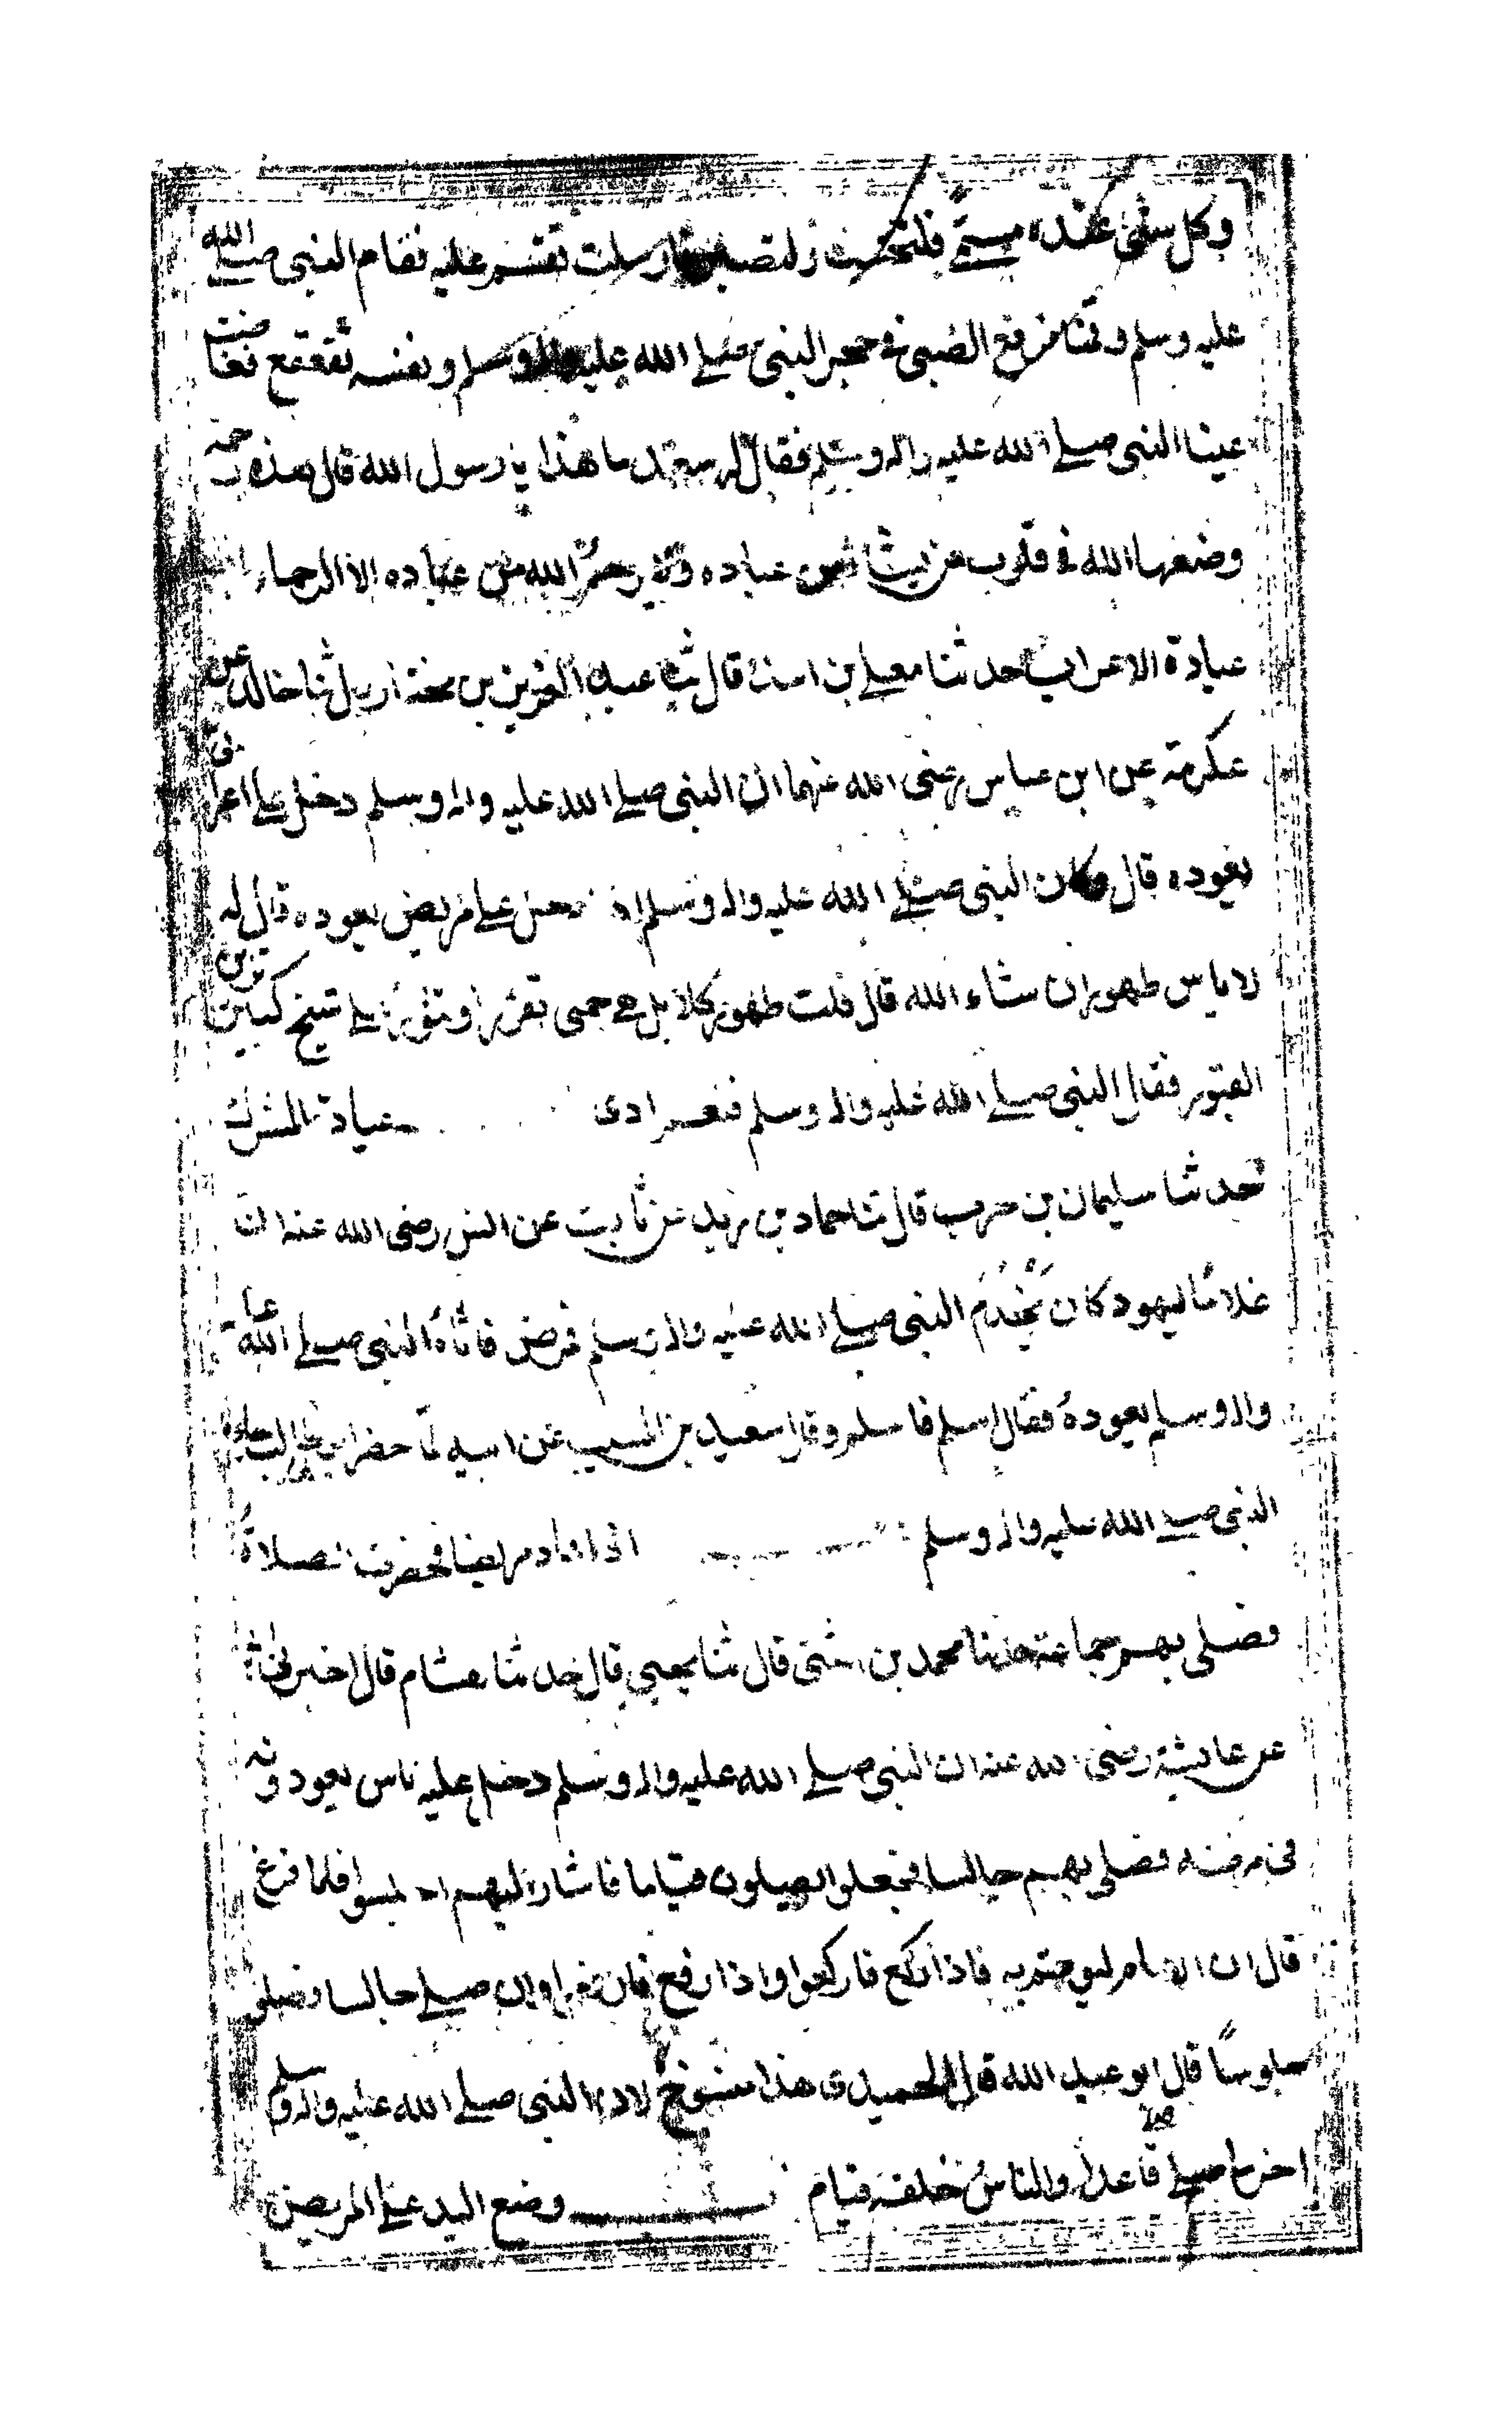 وكل شئ عنده مسمى فلتحتسب ولتصبر فارسلت تقسم عليه فقام النبي صلى الله
عليه وسلم وقمنا فرفع الصبي في حجر النبي صلى الله عليه واله وسلم ونفسه تقعقع ففاضت
عينا النبي صلى الله عليه واله وسلم فقال له سعد ما هذا يا رسول الله قال هذه رحمة
وضعها الله في قلوب من يشاء من عباده ولا يرحم الله من عباده الا الرحماء
عيادة الاعراب حدثنا معلى بن اسد قال ثنا عبد العزيز بن مختار قال ثنا خالد عن
عكرمة عن ابن عباس رضى الله عنهما ان النبي صلى الله عليه واله وسلم دخل على اعرابي
يعوده قال وكان النبي صلى الله عليه واله وسلم اذا دخل على مريض يعوده قال له
لا باس طهور ان شاء الله قال قلت طهور كلا بل هي حمى تفور او تثور على شيخ كبير تزيره
القبور فقال النبي صلى الله عليه واله وسلم فنعم اذى عيادة المشرك
حدثنا سليمان بن حرب قال ثنا حماد بن زيد عن ثابت عن انس رضى الله عنه ان
غلاما ليهود كان يخدم النبي صلى الله عليه واله وسلم فمرض فاتاه النبي صلى الله عليه
واله وسلم يعوده فقال اسلم فاسلم وقال سعيد بن المسيب عن ابيه لما حضر ابو طالب جاءه
النبي صلى الله عليه واله وسلم اذا عاد مريضا فحضرت الصلاة
فصلى بهم جماعة حدثنا محمد بن المثنى قال ثنا يحيى قال حدثنا هشام قال اخبرني ابي
عن عائشة رضى الله عنه ان النبي صلى الله عليه واله وسلم دخل عليه ناس يعودونه
في مرضه فصلى بهم جالسا فجعلوا يصلون قياما فاشار اليهم اجلسوا فلما فرغ
قال ان الامام ليوتم به فاذا ركع فاركعوا واذا رفع فارفعوا وان صلى جالسا فصلوا
جلوسا قال ابو عبد الله قال الحميدي هذا منسوخ لان النبي صلى الله عليه واله وسلم
اخر ما صلى قاعدا والناس خلفه قيام وضع اليد على المريض